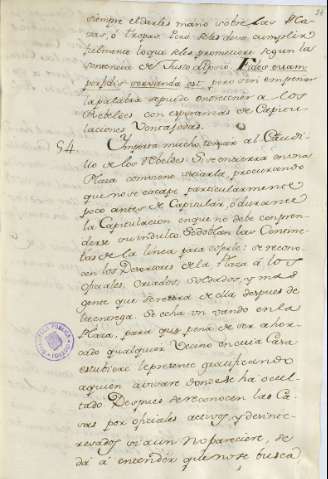 siempre el darles mano sobre las Pla-
zas, ó tropas. Pero se les deve cumplir
fielmente lo que se les prometiere segun la
sentencia de Justo Lipsio. Fides etiam
perfidis servanda est, pero sin empeñar
la palabra se puede entretener a los
Rebeldes con esperanzas de Capitu-
laciones Ventajosas.
54. Importa mucho tomar al Caudi-
llo de los Rebeldes. Si se encierra en una
Plaza conviene sitiarla, procurando
que no se escape particularmente
poco antes de Capitular, ó durante
la Capitulacion en que no debe compren-
derse su indulto. Se doblan las Centine-
las de la linea para cogerle: se recono-
cen los Desertores de la Plaza á los
oficiales, Criados, soldados, y mas
gente que se retira de ella despues de
la entrega. Se echa un vando en la
Plaza, para que pena de ser ahor-
cado qualquier Vecino en cuia Casa
estubiere le presente gratificando
a quien avisare donde se ha ocul-
tado. Despues se reconocen las Ca-
sas por oficiales activos, y desinte-
resados si aun no pareciere, se
dá á entender que no se busca